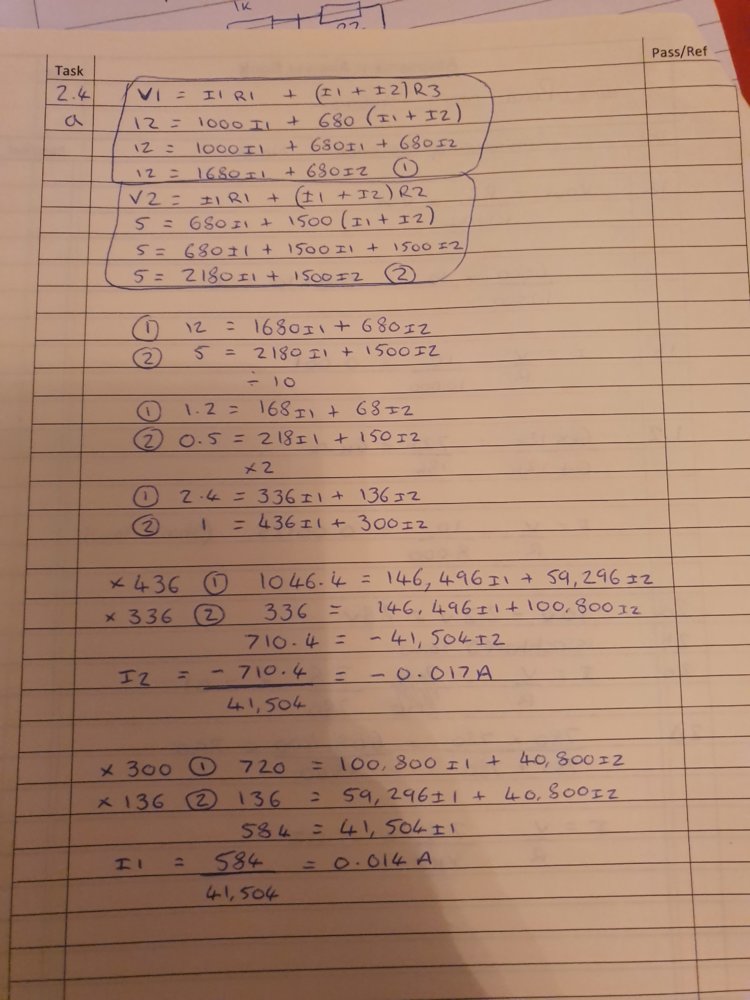 1K
Pass/Ref
Task
2.4
a
V1 = I1 R1 + (I1 + I2) R3
12 = 1000I1 + 680 (I1 + I2)
12 = 1000I1 + 680I1 + 680I2
12 = 1680I1 + 680I2 ①
V2 = I1 R1 + (I1 + I2) R2
5 = 680I1 + 1500 (I1 + I2)
5 = 680I1 + 1500I1 + 1500I2
5 = 2180I1 + 1500I2 ②
① 12 = 1680I1 + 680I2
② 5 = 2180I1 + 1500I2
÷ 10
① 1.2 = 168I1 + 68I2
② 0.5 = 218I1 + 150I2
×2
① 2.4 = 336I1 + 136I2
② 1 = 436I1 + 300I2
× 436 ① 1046.4 = 146,496I1 + 59,296I2
× 336 ② 336 = 146,496I1 + 100,800I2
710.4 = - 41,504I2
I2 = - 710.4 = - 0.017A
41,504
× 300 ① 720 = 100,800I1 + 40,800I2
× 136 ② 136 = 59,296I1 + 40,800I2
584 = 41,504I1
I1 = 584 = 0.014 A
41,504